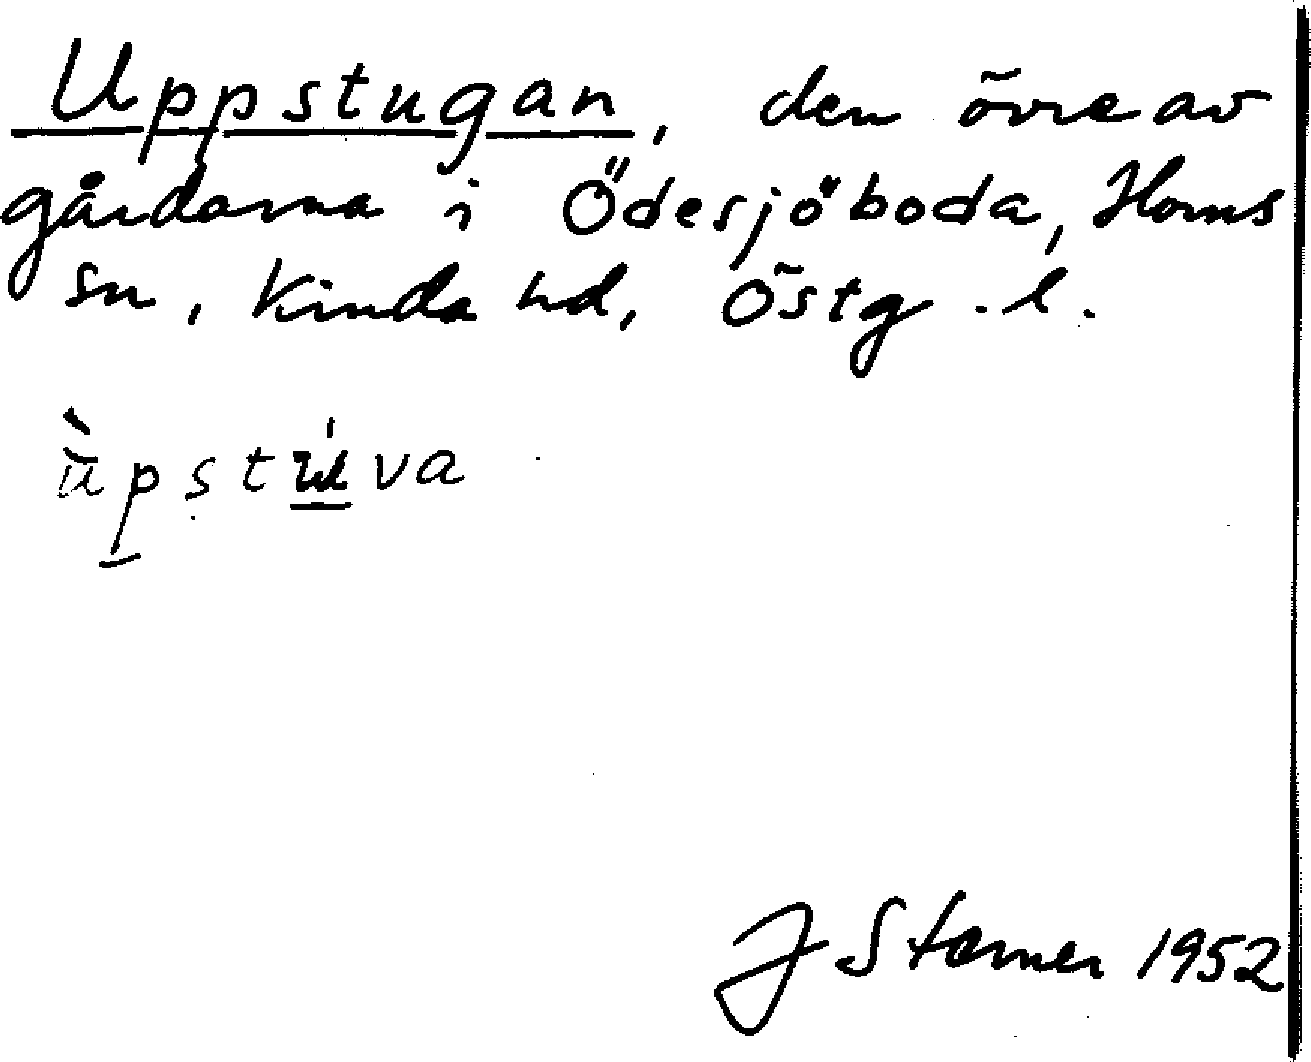 Uppstugan, den övre av
gårdarna i Ödesjöboda, Horns
sn, Kinda hd, Östg. l.
ùpstúva
J Sterner 1952